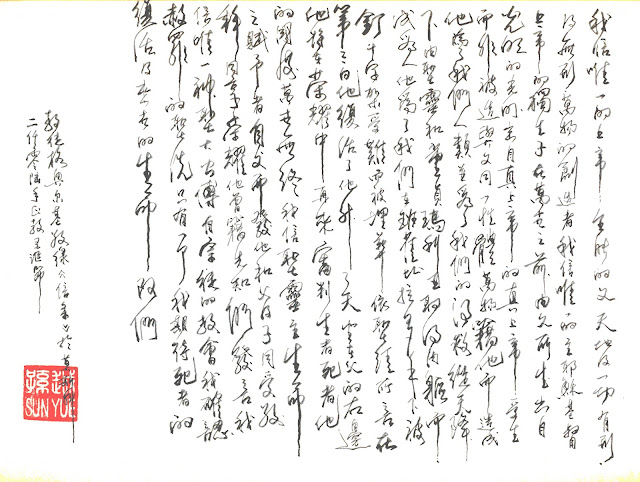 我信唯一的上帝 全能的父 天地及一切有形
及無形萬物的創造者 我信唯一的主耶穌基督
上帝的獨生子 在萬世之前由父所生 出自
光明的光明 出自真上帝的真上帝 受生
而非被造 與父同一性體 萬物藉他而造成
他為了我們人類並為了我們的得救 從天降
下 由聖靈和童貞瑪利亞取得肉軀
成為人 他為了我們在 手下被
釘十字架 受難而被埋葬 依聖經所言 在
第三日他復活了 他升了天 坐在父的右邊
他將在榮耀中再來 審判生者死者 他
的國度萬世無終 我信聖靈 主 生命
之賦予者 自父而發 他和父及子同受敬
拜 同享榮耀 他曾藉先知們發言 我
信唯一神聖大公傳自宗徒的教會 我確認
赦罪的聖洗只有一個 我期待死者的
復活及來世的生命 阿們
敬錄
二仟零陆年正教圣诞节
孫越
SUN YUE